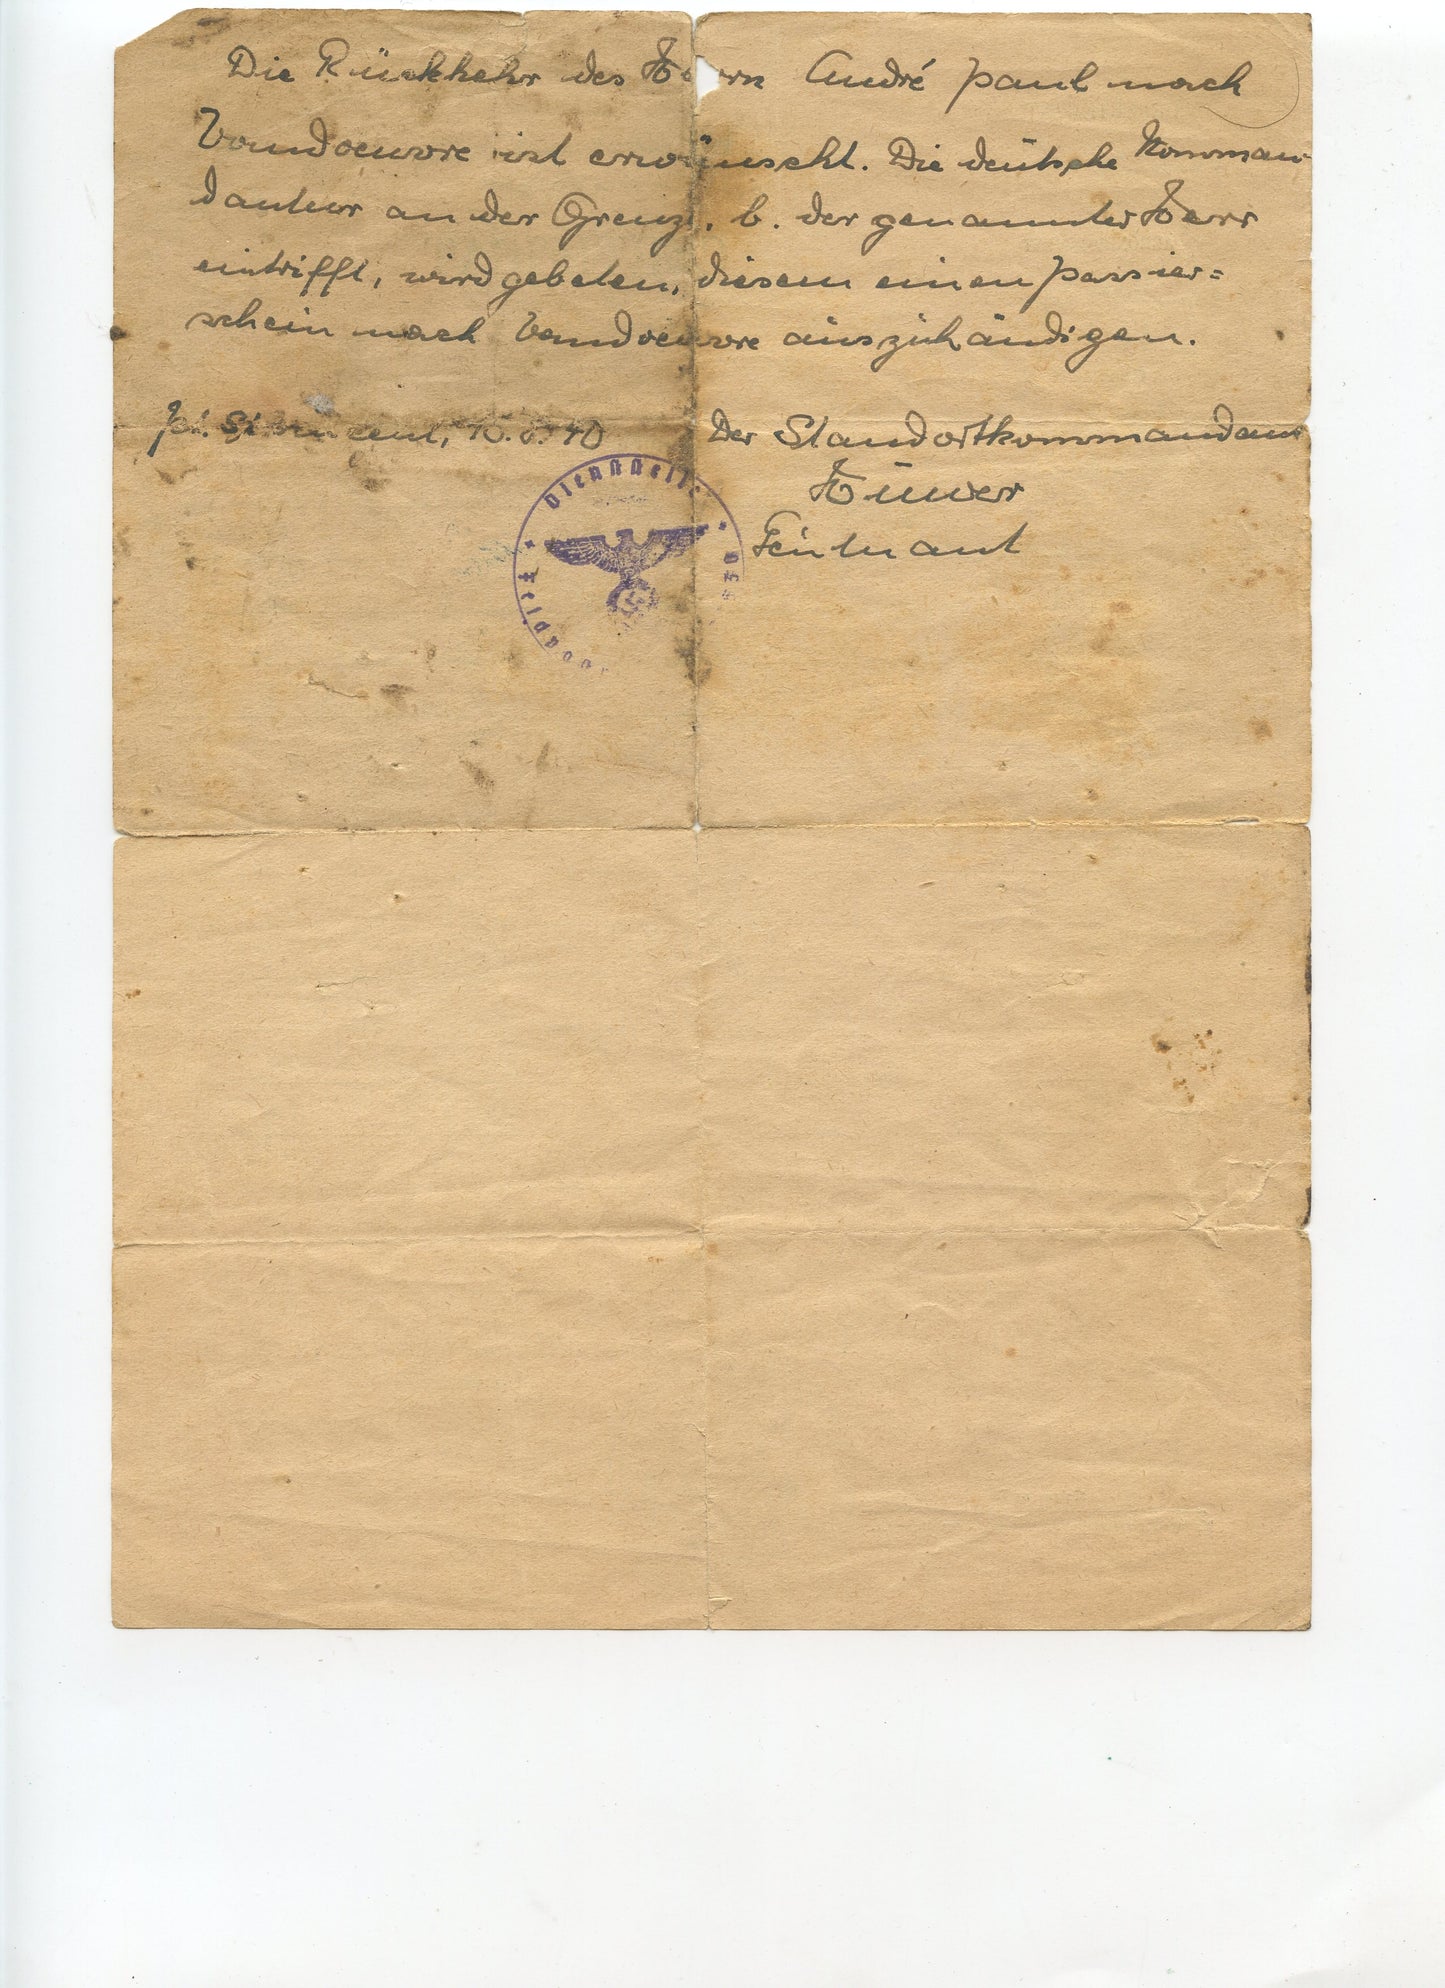 Die Rückkehr des Herrn André Paul nach
Vandoeuvre ist erwünscht. Die deutsche Komman-
dantur an der Grenze, b. der genannter Herr
eintrifft, wird gebeten, diesem einen Passier=
schein nach Vandoeuvre auszuhändigen.
10. 8. 40 Der Standortkommandant
Hüwer
Leutnant
Dienststelle
Feldpost